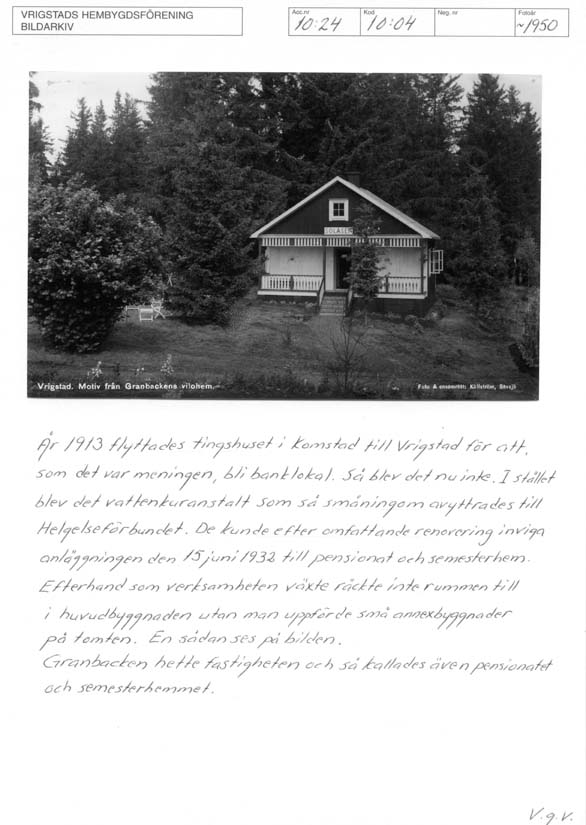 VRIGSTADS HEMBYGDSFÖRENING
BILDARKIV
Acc.nr
10:24
Kod
10:04
Neg. nr
Fotoår
~1950
SOLÅSEN
Vrigstad. Motiv från Granbackens vilohem.
Foto & ensamrätt: Källström, Sävsjö
År 1913 flyttades tingshuset i Komstad till Vrigstad för att,
som det var meningen, bli banklokal. Så blev det nu inte. I stället
blev det vattenkuranstalt som så småningom avyttrades till
Helgelseförbundet. De kunde efter omfattande renovering inviga
anläggningen den 15 juni 1932 till pensionat och semesterhem.
Efterhand som verksamheten växte räckte inte rummen till
i huvudbyggnaden utan man uppförde små annexbyggnader
på tomten. En sådan ses på bilden.
Granbacken hette fastigheten och så kallades även pensionatet
och semesterhemmet.
V.g.V.